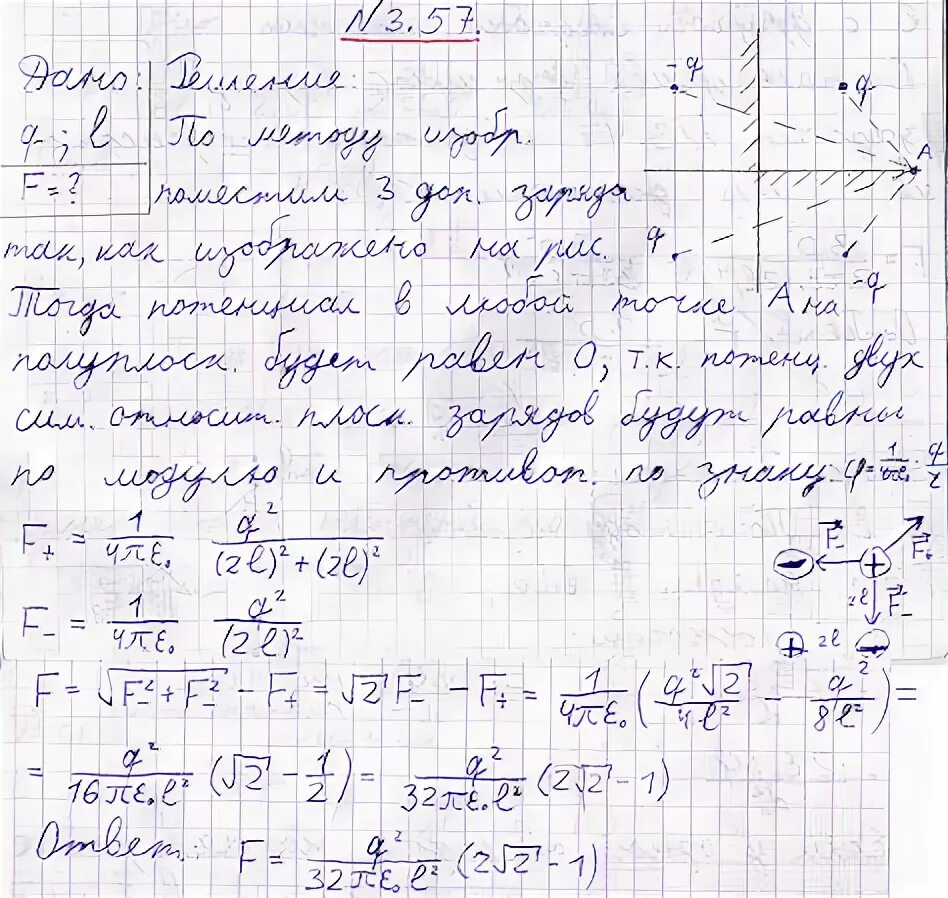 № 3.57.
Дано: Решение:
q; l По методу изобр.
F=? поместим 3 доп. заряда
так, как изображено на рис.
-q q
A
q -q
Тогда потенциал в любой точке А на
полуплоск. будет равен 0, т.к. потенц. двух
сим. относит. плоск. зарядов будут равны
по модулю и противоп. по знаку. φ = 1/4πε₀ · q/r
F₊ = 1/4πε₀ q²/((2l)²+(2l)²)
F₋ = 1/4πε₀ q²/(2l)²
F₋ F₊
2l F₋
2l
F = √(F₋² + F₋²) - F₊ = √2 F₋ - F₊ = 1/4πε₀ (q²√2/4l² - q²/8l²) =
= q²/16πε₀l² (√2 - 1/2) = q²/32πε₀l² (2√2 - 1)
Ответ: F = q²/32πε₀l² (2√2 - 1)